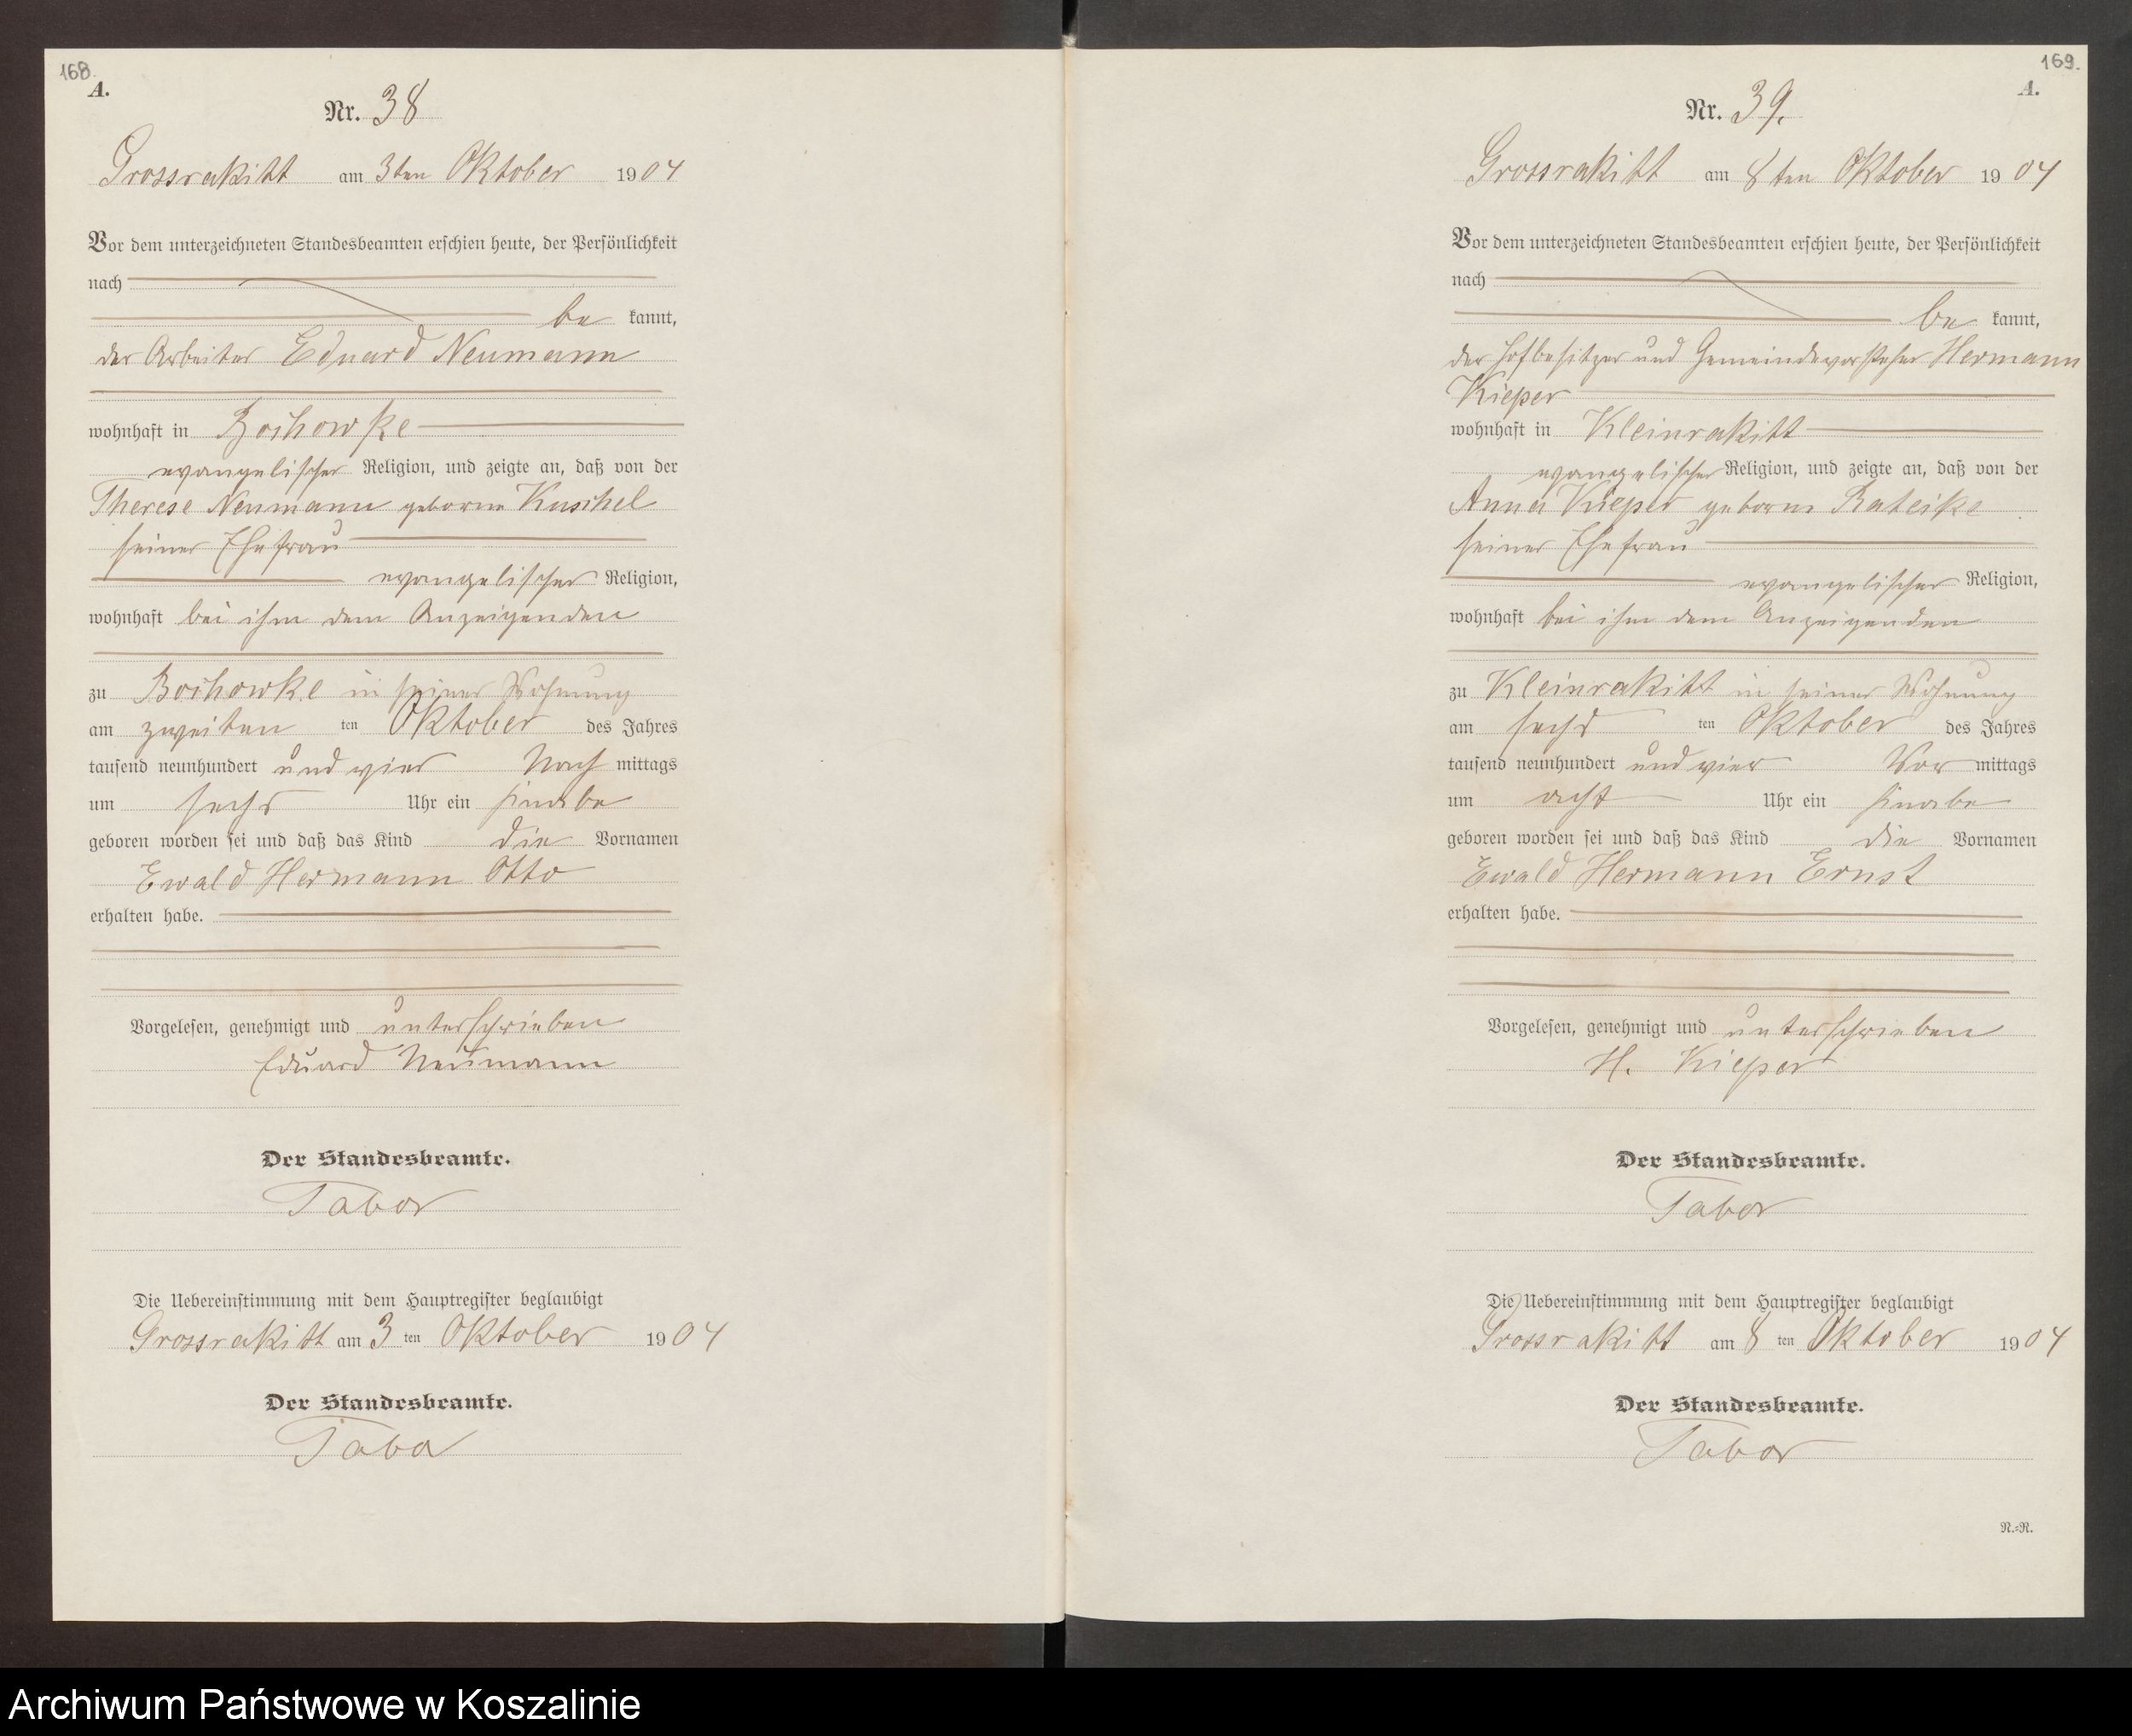 168.
A.
Nr. 38
Grossrakitt am 3ten Oktober 1904
Vor dem unterzeichneten Standesbeamten erschien heute, der Persönlichkeit
nach
be kannt,
der Arbeiter Eduard Neumann
wohnhaft in Bochowke
evangelischer Religion, und zeigte an, daß von der
Therese Neumann geborne Kuschel
seiner Ehefrau
evangelischer Religion,
wohnhaft bei ihm dem Anzeigenden
zu Bochowke in seiner Wohnung
am zweiten ten Oktober des Jahres
tausend neunhundert und vier Nach mittags
um sechs Uhr ein Knabe
geboren worden sei und daß das Kind die Vornamen
Ewald Hermann Otto
erhalten habe.
Vorgelesen, genehmigt und unterschrieben
Eduard Neumann
Der Standesbeamte.
Tabor
Die Uebereinstimmung mit dem Hauptregister beglaubigt
Grossrakitt am 3 ten Oktober 1904
Der Standesbeamte.
Tabor
169.
A.
Nr. 39.
Grossrakitt am 8ten Oktober 1904
Vor dem unterzeichneten Standesbeamten erschien heute, der Persönlichkeit
nach
be kannt,
der Hofbesitzer und Gemeindevorsteher Hermann
Kieper
wohnhaft in Kleinrakitt
evangelischer Religion, und zeigte an, daß von der
Anna Kieper geborne Rateike
seiner Ehefrau
evangelischer Religion,
wohnhaft bei ihm dem Anzeigenden
zu Kleinrakitt in seiner Wohnung
am sechs ten Oktober des Jahres
tausend neunhundert und vier Vor mittags
um acht Uhr ein Knabe
geboren worden sei und daß das Kind die Vornamen
Ewald Hermann Ernst
erhalten habe.
Vorgelesen, genehmigt und unterschrieben
H. Kieper
Der Standesbeamte.
Tabor
Die Uebereinstimmung mit dem Hauptregister beglaubigt
Grossrakitt am 8 ten Oktober 1904
Der Standesbeamte.
Tabor
N.=N.
Archiwum Państwowe w Koszalinie